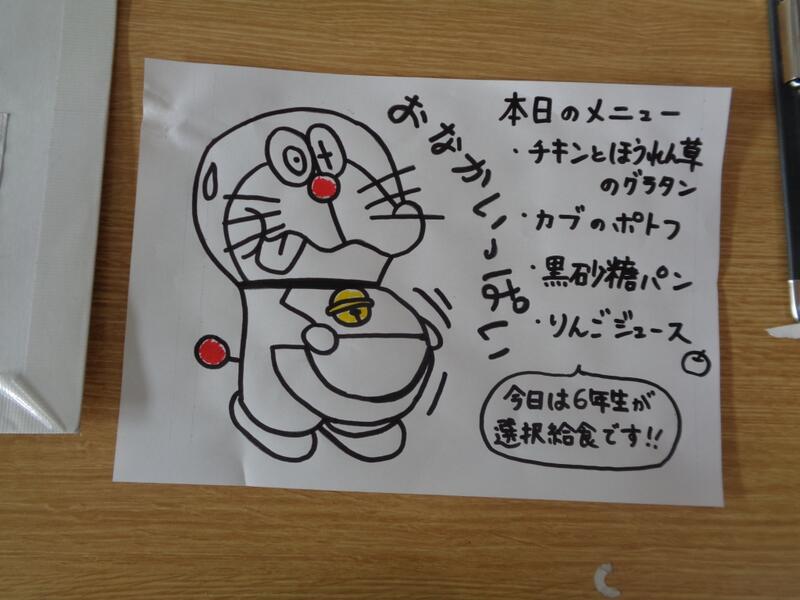 おなかいっぱい
本日のメニュー
・チキンとほうれん草
のグラタン
・カブのポトフ
・黒砂糖パン
・りんごジュース
今日は6年生が
選択給食です!!